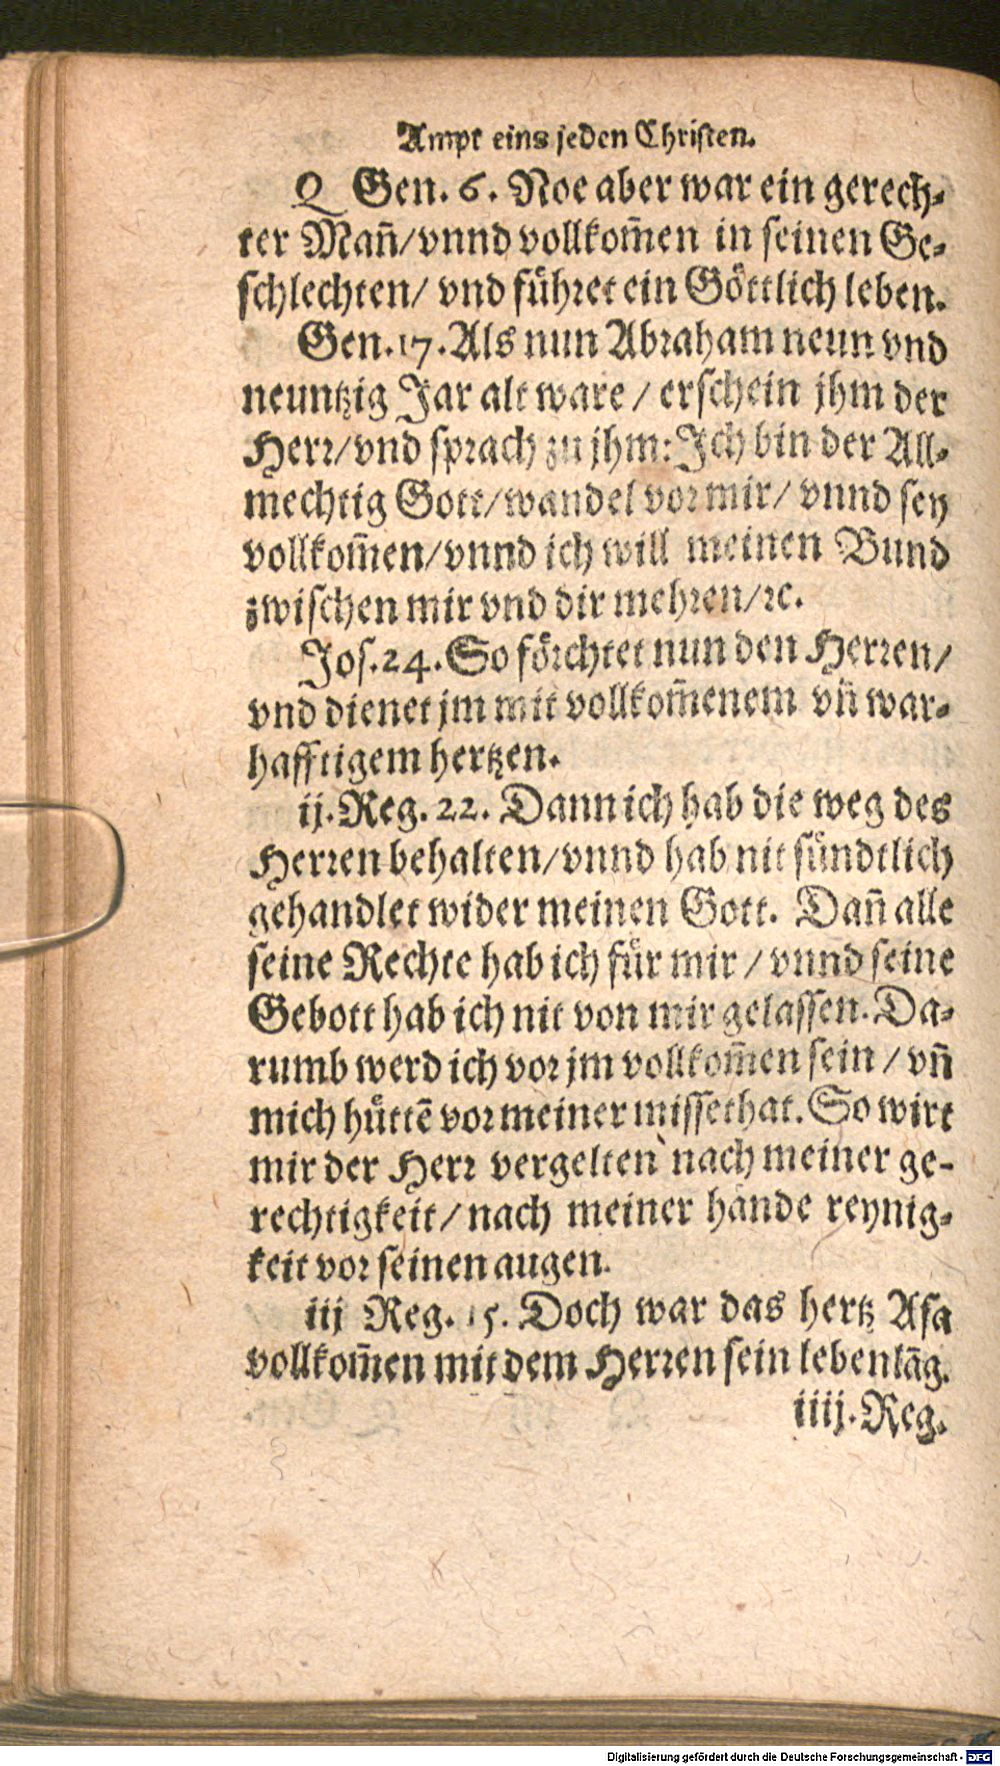 Ampt eins jeden Christen.
Q Gen. 6. Noe aber war ein gerech-
ter Mañ/vnnd vollkom̃en in seinen Ge-
schlechten/ vnd fůhret ein Göttlich leben.
Gen. 17. Als nun Abraham neun vnd
neuntzig Jar alt ware / erschein jhm der
Herr/vnd sprach zu jhm: Ich bin der All-
mechtig Gott/wandel vor mir/ vnnd sey
vollkom̃en/vnnd ich will meinen Bund
zwischen mir vnd dir mehren/ꝛc.
Jos. 24. So förchtet nun den Herren/
vnd dienet jm mit vollkom̃enem vñ war-
hafftigem hertzen.
ij. Reg. 22. Dann ich hab die weg des
Herren behalten/vnnd hab nit sündtlich
gehandlet wider meinen Gott. Dañ alle
seine Rechte hab ich für mir / vnnd seine
Gebott hab ich nit von mir gelassen. Da-
rumb werd ich vor jm vollkom̃en sein / vñ
mich hüttẽ vor meiner missethat. So wirt
mir der Herr vergelten nach meiner ge-
rechtigkeit/nach meiner hånde reynig-
keit vor seinen augen.
iij Reg. 15. Doch war das hertz Asa
vollkom̃en mit dem Herren sein lebenlãg.
iiij. Reg.
Digitalisierung gefördert durch die Deutsche Forschungsgemeinschaft - DFG